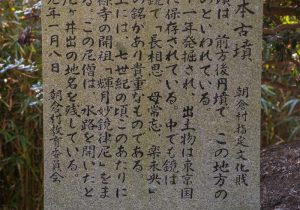 本古墳
朝倉村指定文化財
墳は、前方後円墳で、この地方の
のといわれている。
一年発掘され、出土物は東京国
に保存されている。中でも鏡は
鏡「長相思 母常忘 楽未央」
の銘があり貴重なものである。
上には、七世紀の頃このあたりに
寺の開祖「輝月妙鏡律尼」をま
る。この尼僧は、水路を開いたと
井出の地名を残している。
年 月 日 朝倉村教育委員会